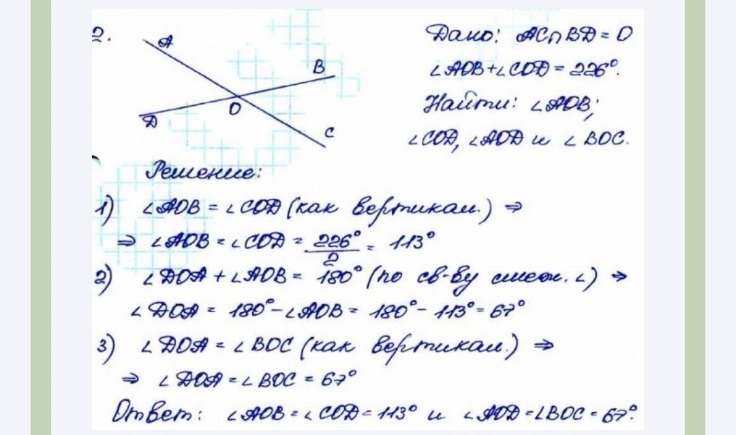 2.
A
B
O
D
C
Дано: AC∩BD = O
∠AOB+∠COD = 226°.
Найти: ∠AOB;
∠COD, ∠AOD и ∠BOC.
Решение:
1) ∠AOB = ∠COD (как вертикал.) ⇒
⇒ ∠AOB = ∠COD = 226°/2 = 113°
2) ∠DOA + ∠AOB = 180° (по св-ву смеж. ∠) ⇒
∠DOA = 180° - ∠AOB = 180° - 113° = 67°
3) ∠DOA = ∠BOC (как вертикал.) ⇒
⇒ ∠DOA = ∠BOC = 67°
Ответ: ∠AOB = ∠COD = 113° и ∠AOD = ∠BOC = 67°.